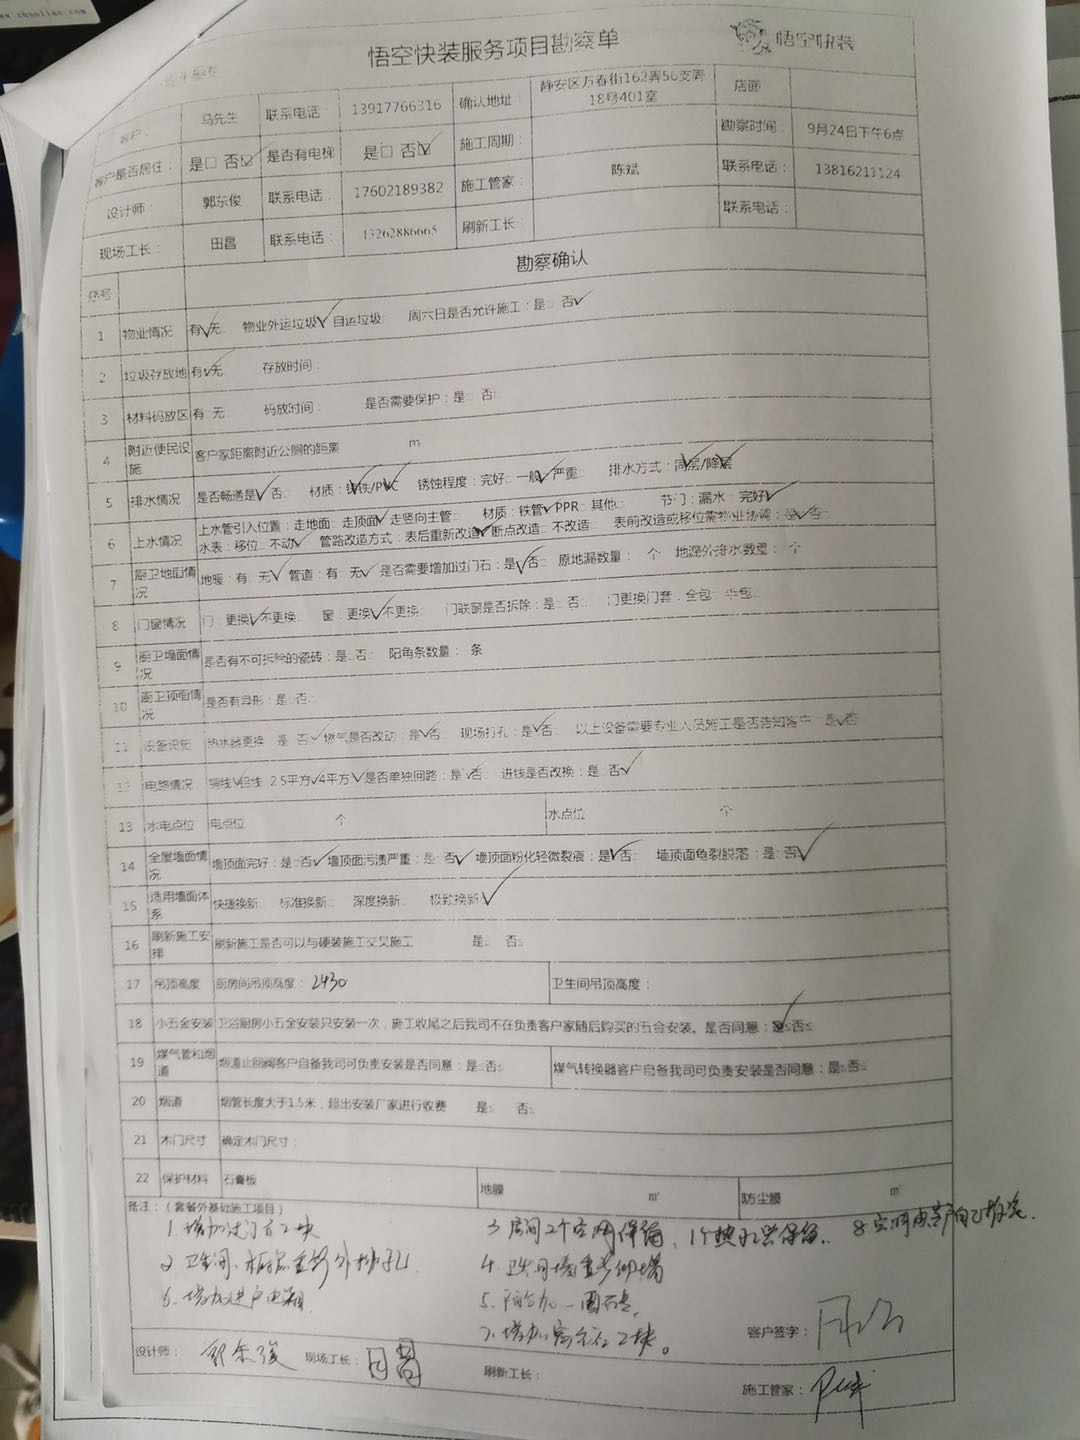 www.zhuolian.com
悟空快装服务项目勘察单
悟空快装
客户： 马先生 联系电话 13917766316 确认地址： 静安区万春街162弄56支弄18号401室 店面
客户是否居住： 是□ 否☑ 是否有电梯 是□ 否☑ 施工周期： 勘察时间： 9月24日下午6点
设计师： 郭东俊 联系电话： 17602189382 施工管家： 陈斌 联系电话： 13816211124
现场工长： 田昌 联系电话： 13262886665 刷新工长： 联系电话：
序号 勘察确认
1 物业情况 有✓无 物业外运垃圾✓ 自运垃圾 周六日是否允许施工：是 否✓
2 垃圾存放地 有✓无 存放时间：
3 材料码放区 有 无 码放时间： 是否需要保护：是 否
4 附近便民设施 客户家距离附近公厕的距离 m
5 排水情况 是否畅通是✓ 否 材质：铸铁/PVC 锈蚀程度：完好 一般✓ 严重 排水方式：同层/降层
6 上水情况 上水管引入位置：走地面 走顶面✓ 走竖向主管 材质：铁管✓ PPR 其他 节门：漏水 完好✓
水表：移位 不动✓ 管路改造方式：表后重新改造✓ 断点改造 不改造 表前改造或移位需物业协调：是✓否
7 厨卫地面情况 地暖：有 无✓ 管道：有 无✓ 是否需要增加过门石：是✓否 原地漏数量： 个 地漏外排水数量： 个
8 门窗情况 门：更换✓不更换 窗：更换✓不更换 门联窗是否拆除：是 否 门更换门套：全包 半包
9 厨卫墙面情况 是否有不可拆除的瓷砖：是 否 阳角条数量： 条
10 厨卫顶面情况 是否有异形：是 否
11 设备设施 热水器更换 是 否✓ 燃气是否改动：是✓否 现场打孔：是✓否 以上设备需要专业人员施工是否告知客户：是✓否
12 电路情况 铜线✓铝线 2.5平方✓4平方✓ 是否单独回路：是✓否 进线是否改换：是 否✓
13 水电点位 电点位 个 水点位 个
14 全屋墙面情况 墙顶面完好：是 否✓ 墙顶面污渍严重：是 否✓ 墙顶面粉化轻微裂痕：是✓否 墙顶面龟裂脱落：是 否✓
15 适用墙面体系 快捷换新 标准换新 深度换新 极致换新✓
16 刷新施工安排 刷新施工是否可以与硬装施工交叉施工 是 否
17 吊顶高度 厨房间吊顶高度：2430 卫生间吊顶高度：
18 小五金安装 卫浴厨房小五金安装只安装一次，施工收尾之后我司不在负责客户家随后购买的五金安装。是否同意：是✓否
19 煤气管和烟道 烟道止回阀客户自备我司可负责安装是否同意：是 否 煤气转换器客户自备我司可负责安装是否同意：是 否
20 烟道 烟管长度大于1.5米，超出安装厂家进行收费 是 否
21 木门尺寸 确定木门尺寸：
22 保护材料 石膏板 地膜 ㎡ 防尘膜 ㎡
备注：（套餐外基础施工项目）
1. 增加过门石2块 3. 房间2个空调保留，1个热水器保留. 8 空调由客户自己拆
2. 卫生间 重新 外排孔 4. 卫生间墙重 墙
6. 增加进户电箱 5. 阳台加一圈
7. 增加窗台石2块。
客户签字：
设计师： 郭东俊 现场工长： 田昌 刷新工长： 施工管家：